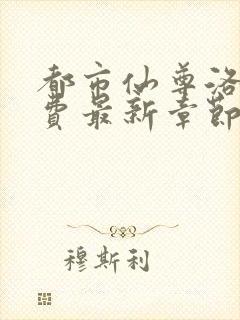 都市仙尊洛
費最新章節
穆斯利